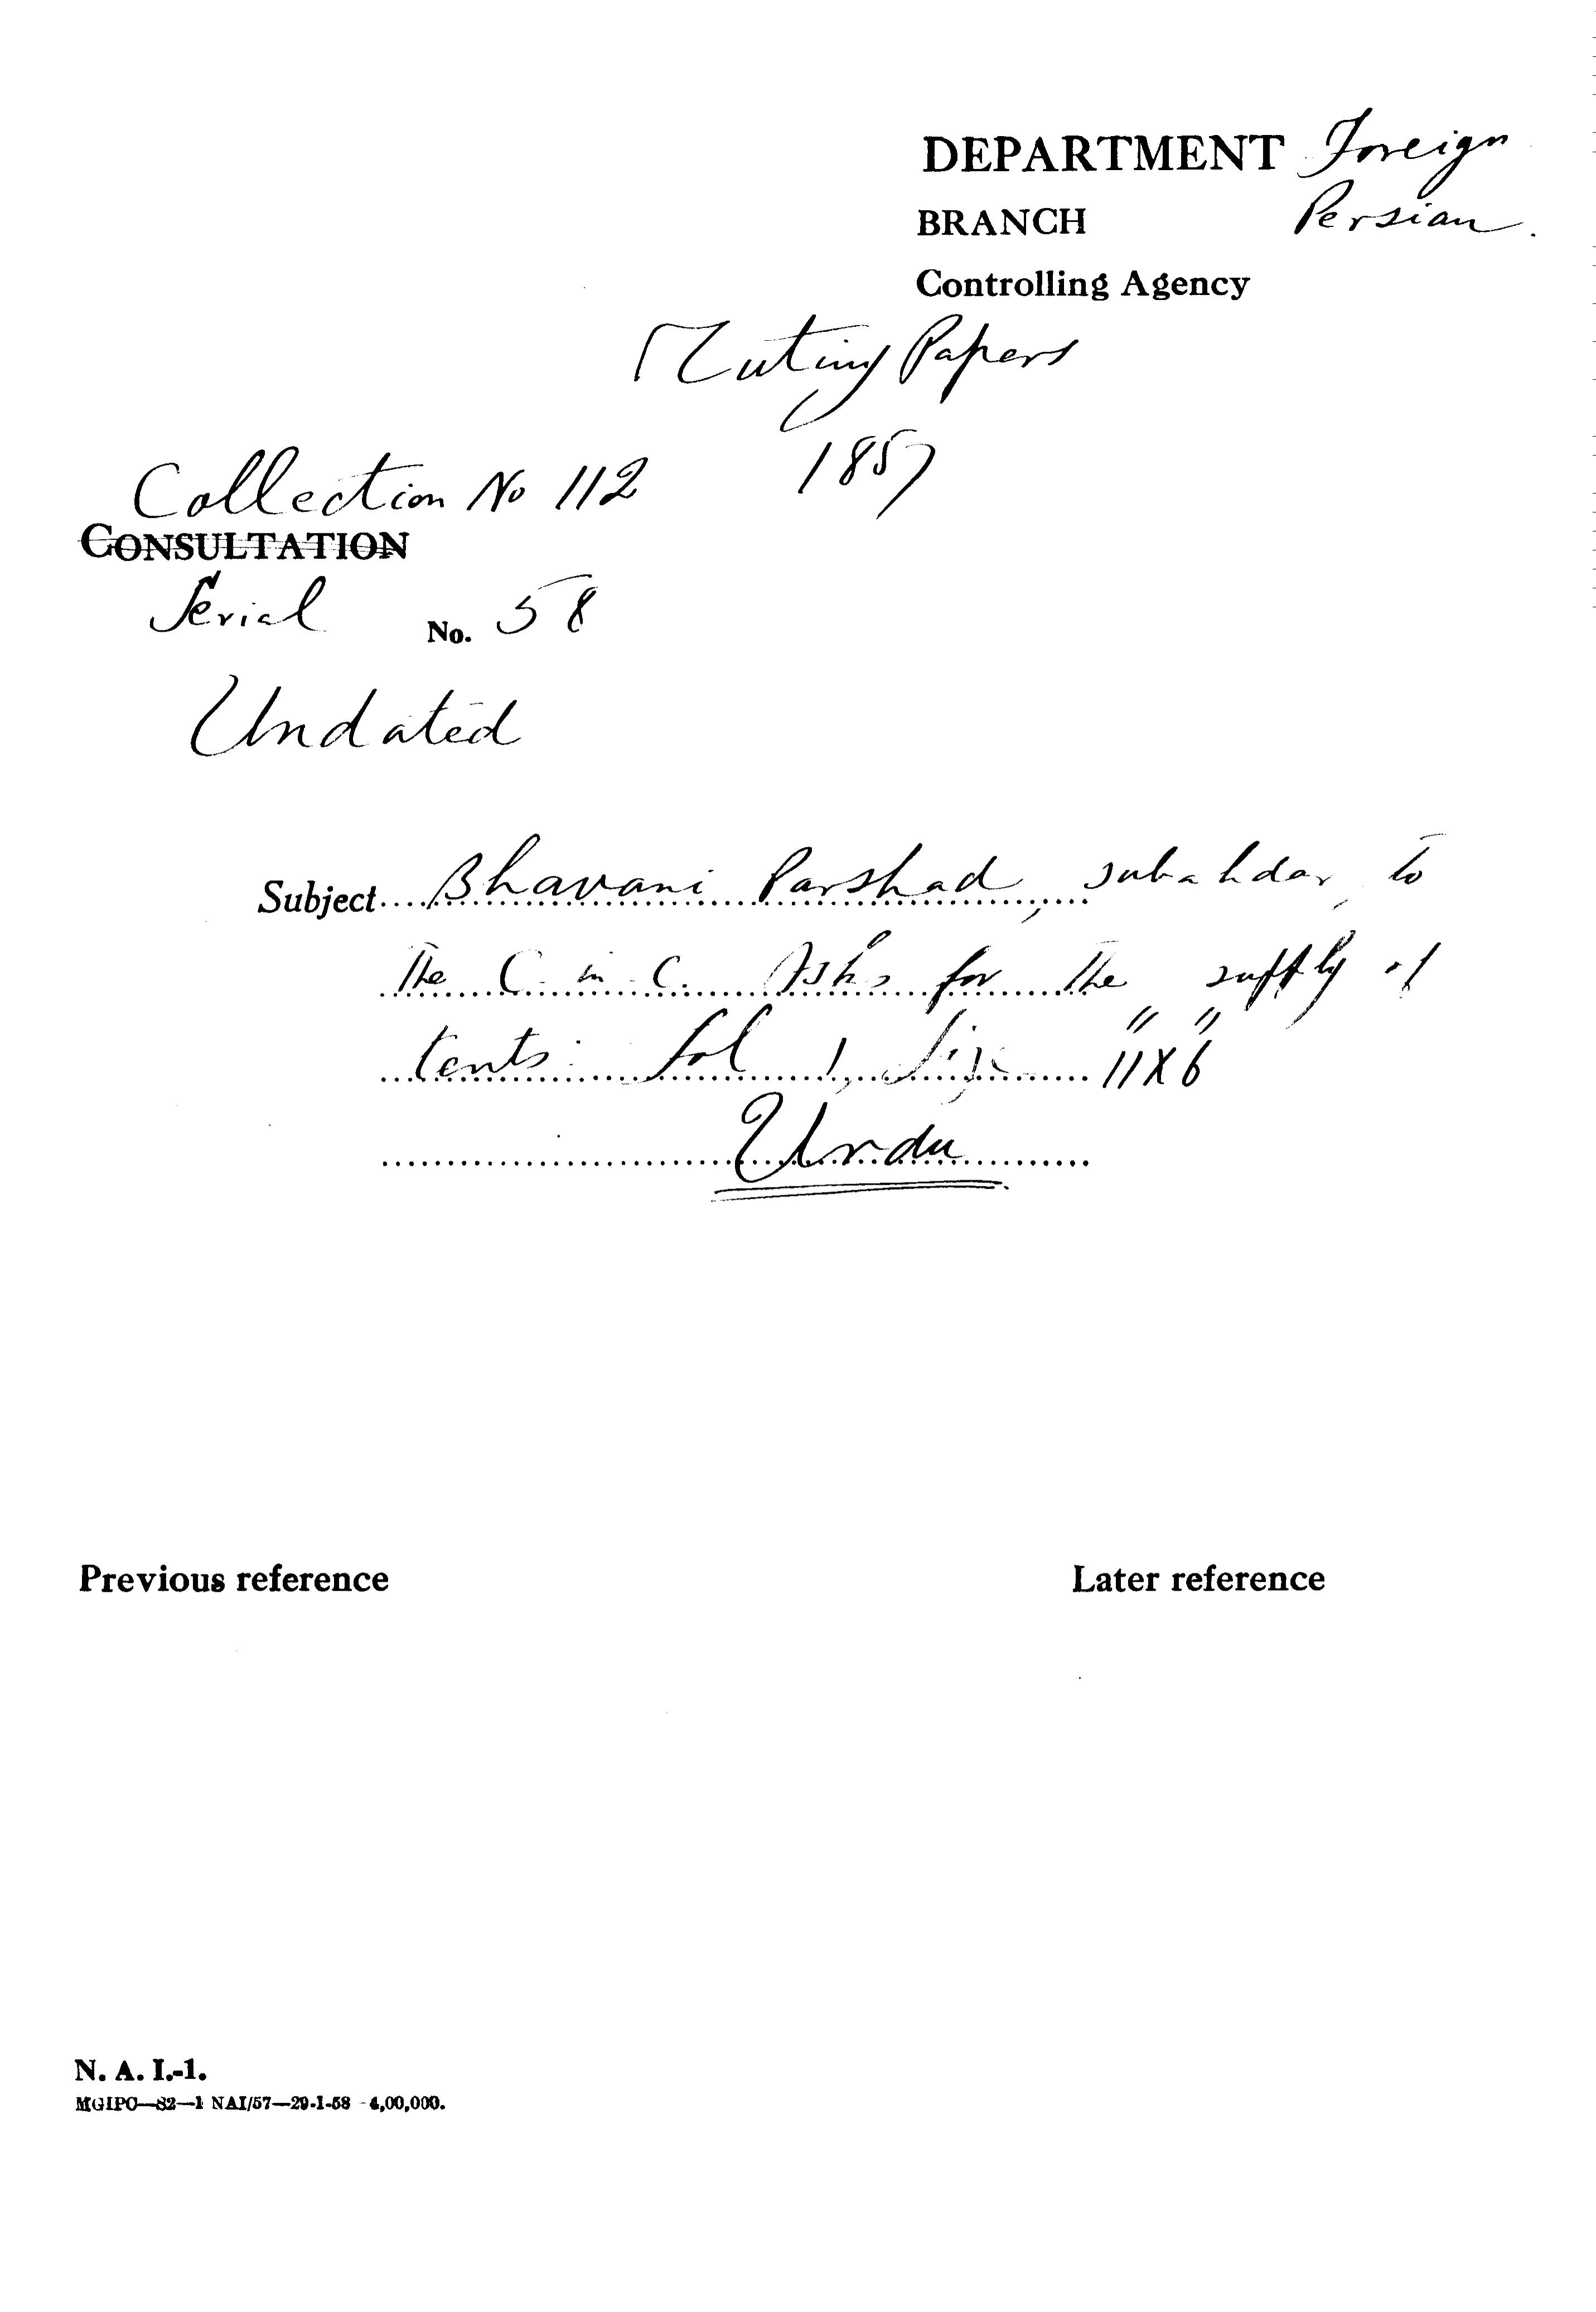 DEPARTMENT Foreign
BRANCH Persian.
Controlling Agency
Mutiny Papers
1857
Collection No 112
CONSULTATION
Serial No. 58
Undated
Subject Bhavani Parshad, subahdar, to
the C in C. Asks for the supply of
tents. fol 1, Size 11" X 6"
Urdu
Previous reference
Later reference
N. A. I.-1.
MGIPC—S2—1 NAI/57—29-1-58 -4,00,000.